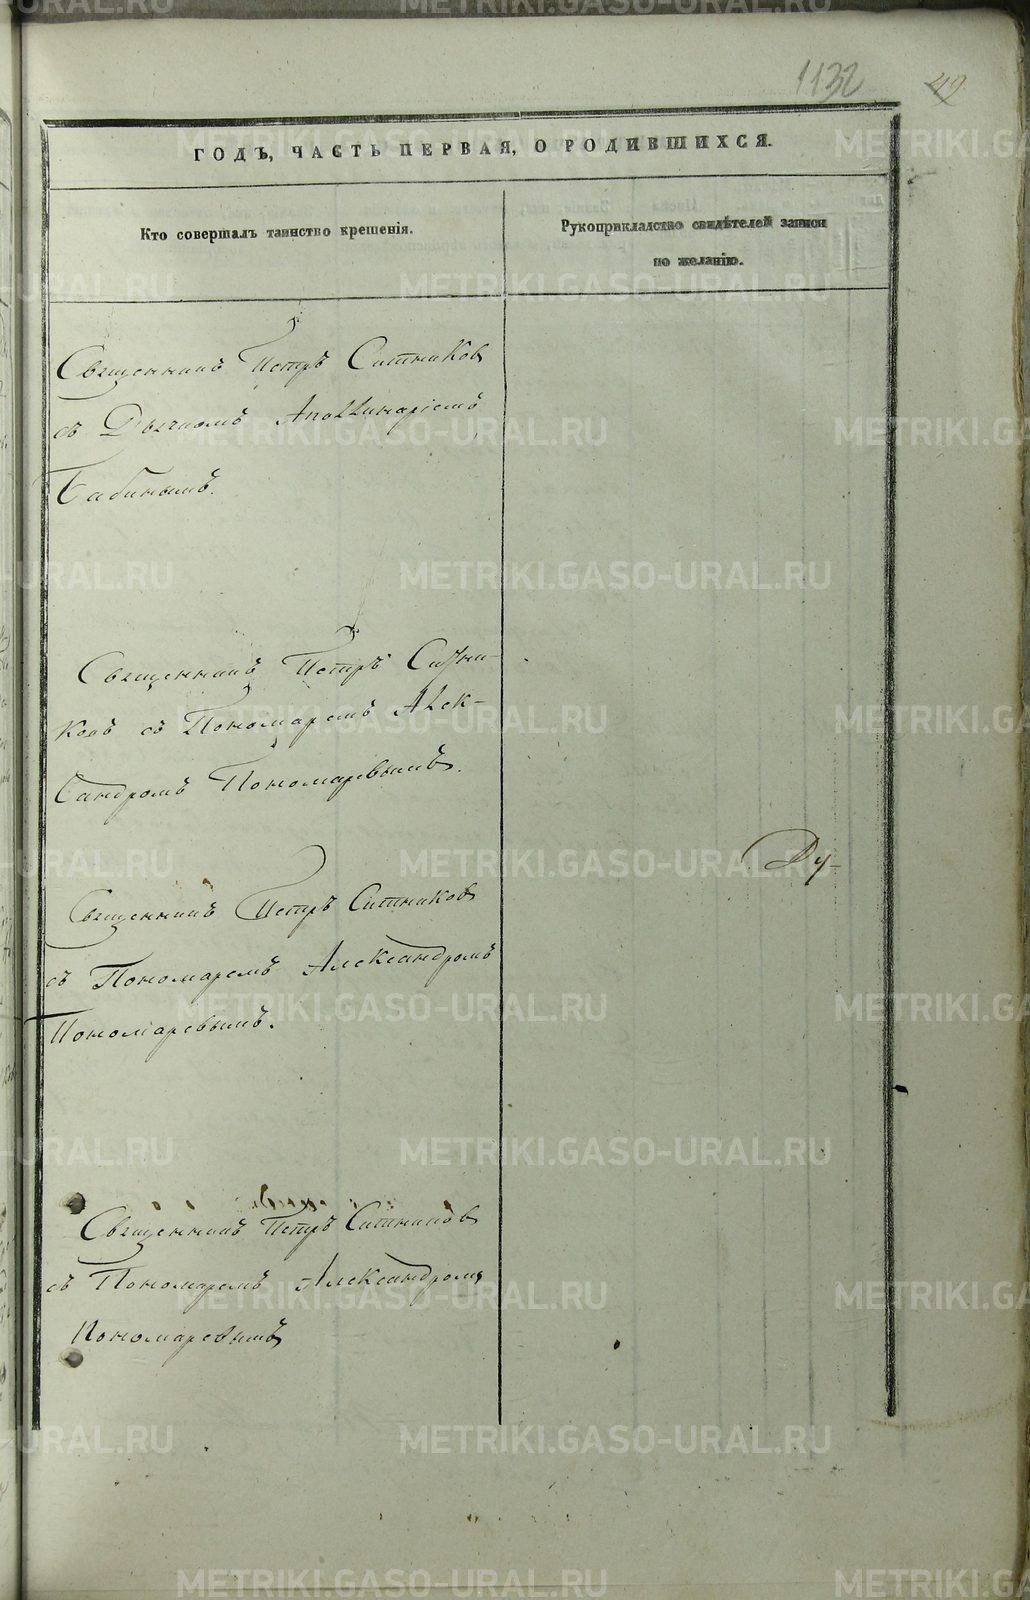 1132 49
ГОДЪ, ЧАСТЬ ПЕРВАЯ, О РОДИВШИХСЯ.
Кто совершалъ таинство крещенія.
Рукоприкладство свидѣтелей записи
по желанію.
Священникъ Петръ Ситников
съ Дьячкомъ Аполлинаріемъ
Бабинымъ.
Священникъ Петръ Ситни-
ковъ съ Пономаремъ Алек-
сандромъ Пономаревымъ.
Ду-
Священникъ Петръ Ситников
съ Пономаремъ Александромъ
Пономаревымъ.
Священникъ Петръ Ситников
съ Пономаремъ Александромъ
Пономаревымъ
METRIKI.GASO-URAL.RU